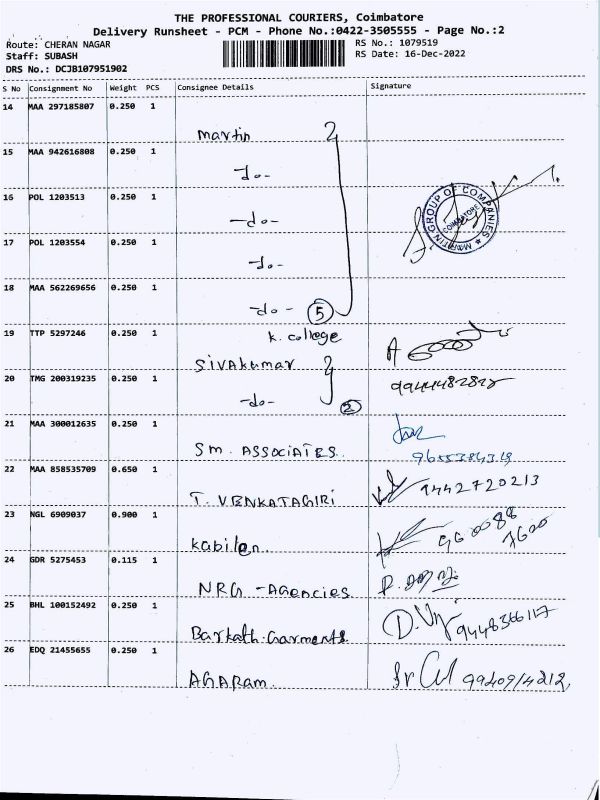 THE PROFESSIONAL COURIERS, Coimbatore
Delivery Runsheet - PCM - Phone No.:0422-3505555 - Page No.:2
Route: CHERAN NAGAR
RS No.: 1079519
Staff: SUBASH
RS Date: 16-Dec-2022
DRS No.: DCJB107951902
S No Consignment No Weight PCS Consignee Details Signature
14 MAA 297185807 0.250 1
Martin
15 MAA 942616808 0.250 1
-do-
16 POL 1203513 0.250 1
MARTIN GROUP OF COMPANIES
COIMBATORE
-do-
17 POL 1203554 0.250 1
-do-
18 MAA 562269656 0.250 1
-do- 5
K. college
19 TTP 5297246 0.250 1
Sivakumar
20 TMG 200319235 0.250 1
-do- 2
21 MAA 300012635 0.250 1
SM. ASSOCIATES.
22 MAA 858535709 0.650 1
T. VENKATAGIRI 9442720213
23 NGL 6909037 0.900 1
Kabilan. 960088
7600
24 GDR 5275453 0.115 1
NRG - Agencies
25 BHL 100152492 0.250 1
Barkath Garments
26 EDQ 21455655 0.250 1
AGARAM.